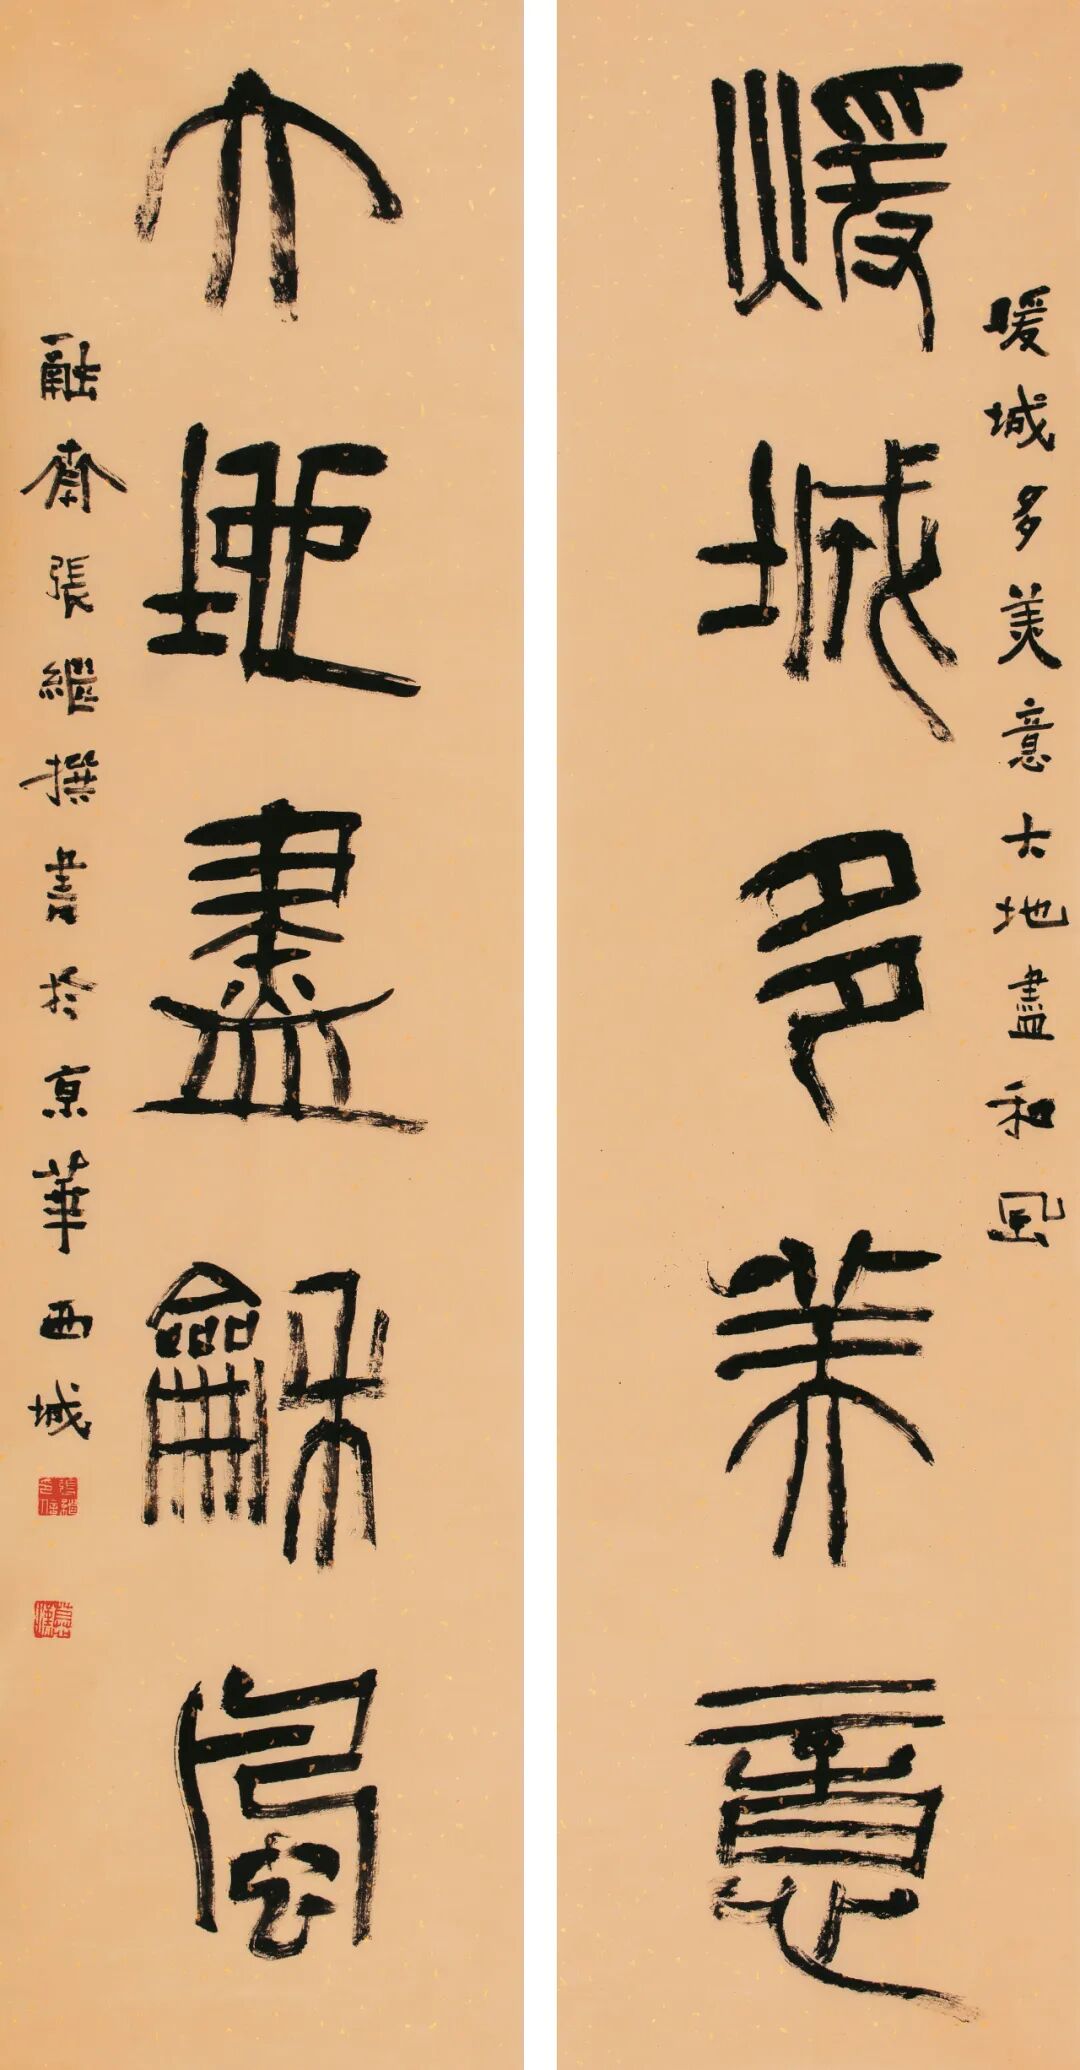 暖城多美意大地盡和風
煖城多美意
大地盡龢風
融齋張繼撰書於京華西城